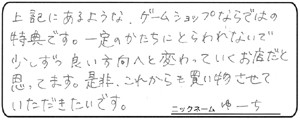 上記にあるような、ゲームショップならではの
特典です。一定のかたちにとらわれないで
少しずつ良い方向へと変わっていくお店だと
思ってます。是非、これからも買い物させて
いただきたいです。
ニックネーム ゆーち